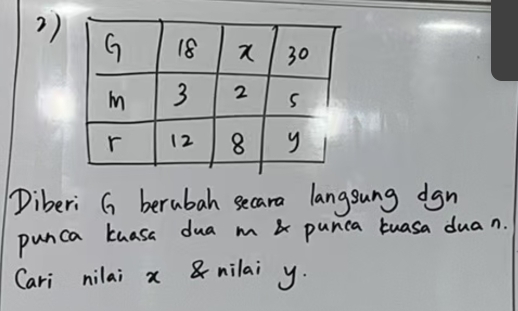 2)
G 18 x 30
m 3 2 5
r 12 8 y
Diberi G berubah secara langsung dgn
punca kuasa dua m & punca kuasa dua n.
Cari nilai x & nilai y.